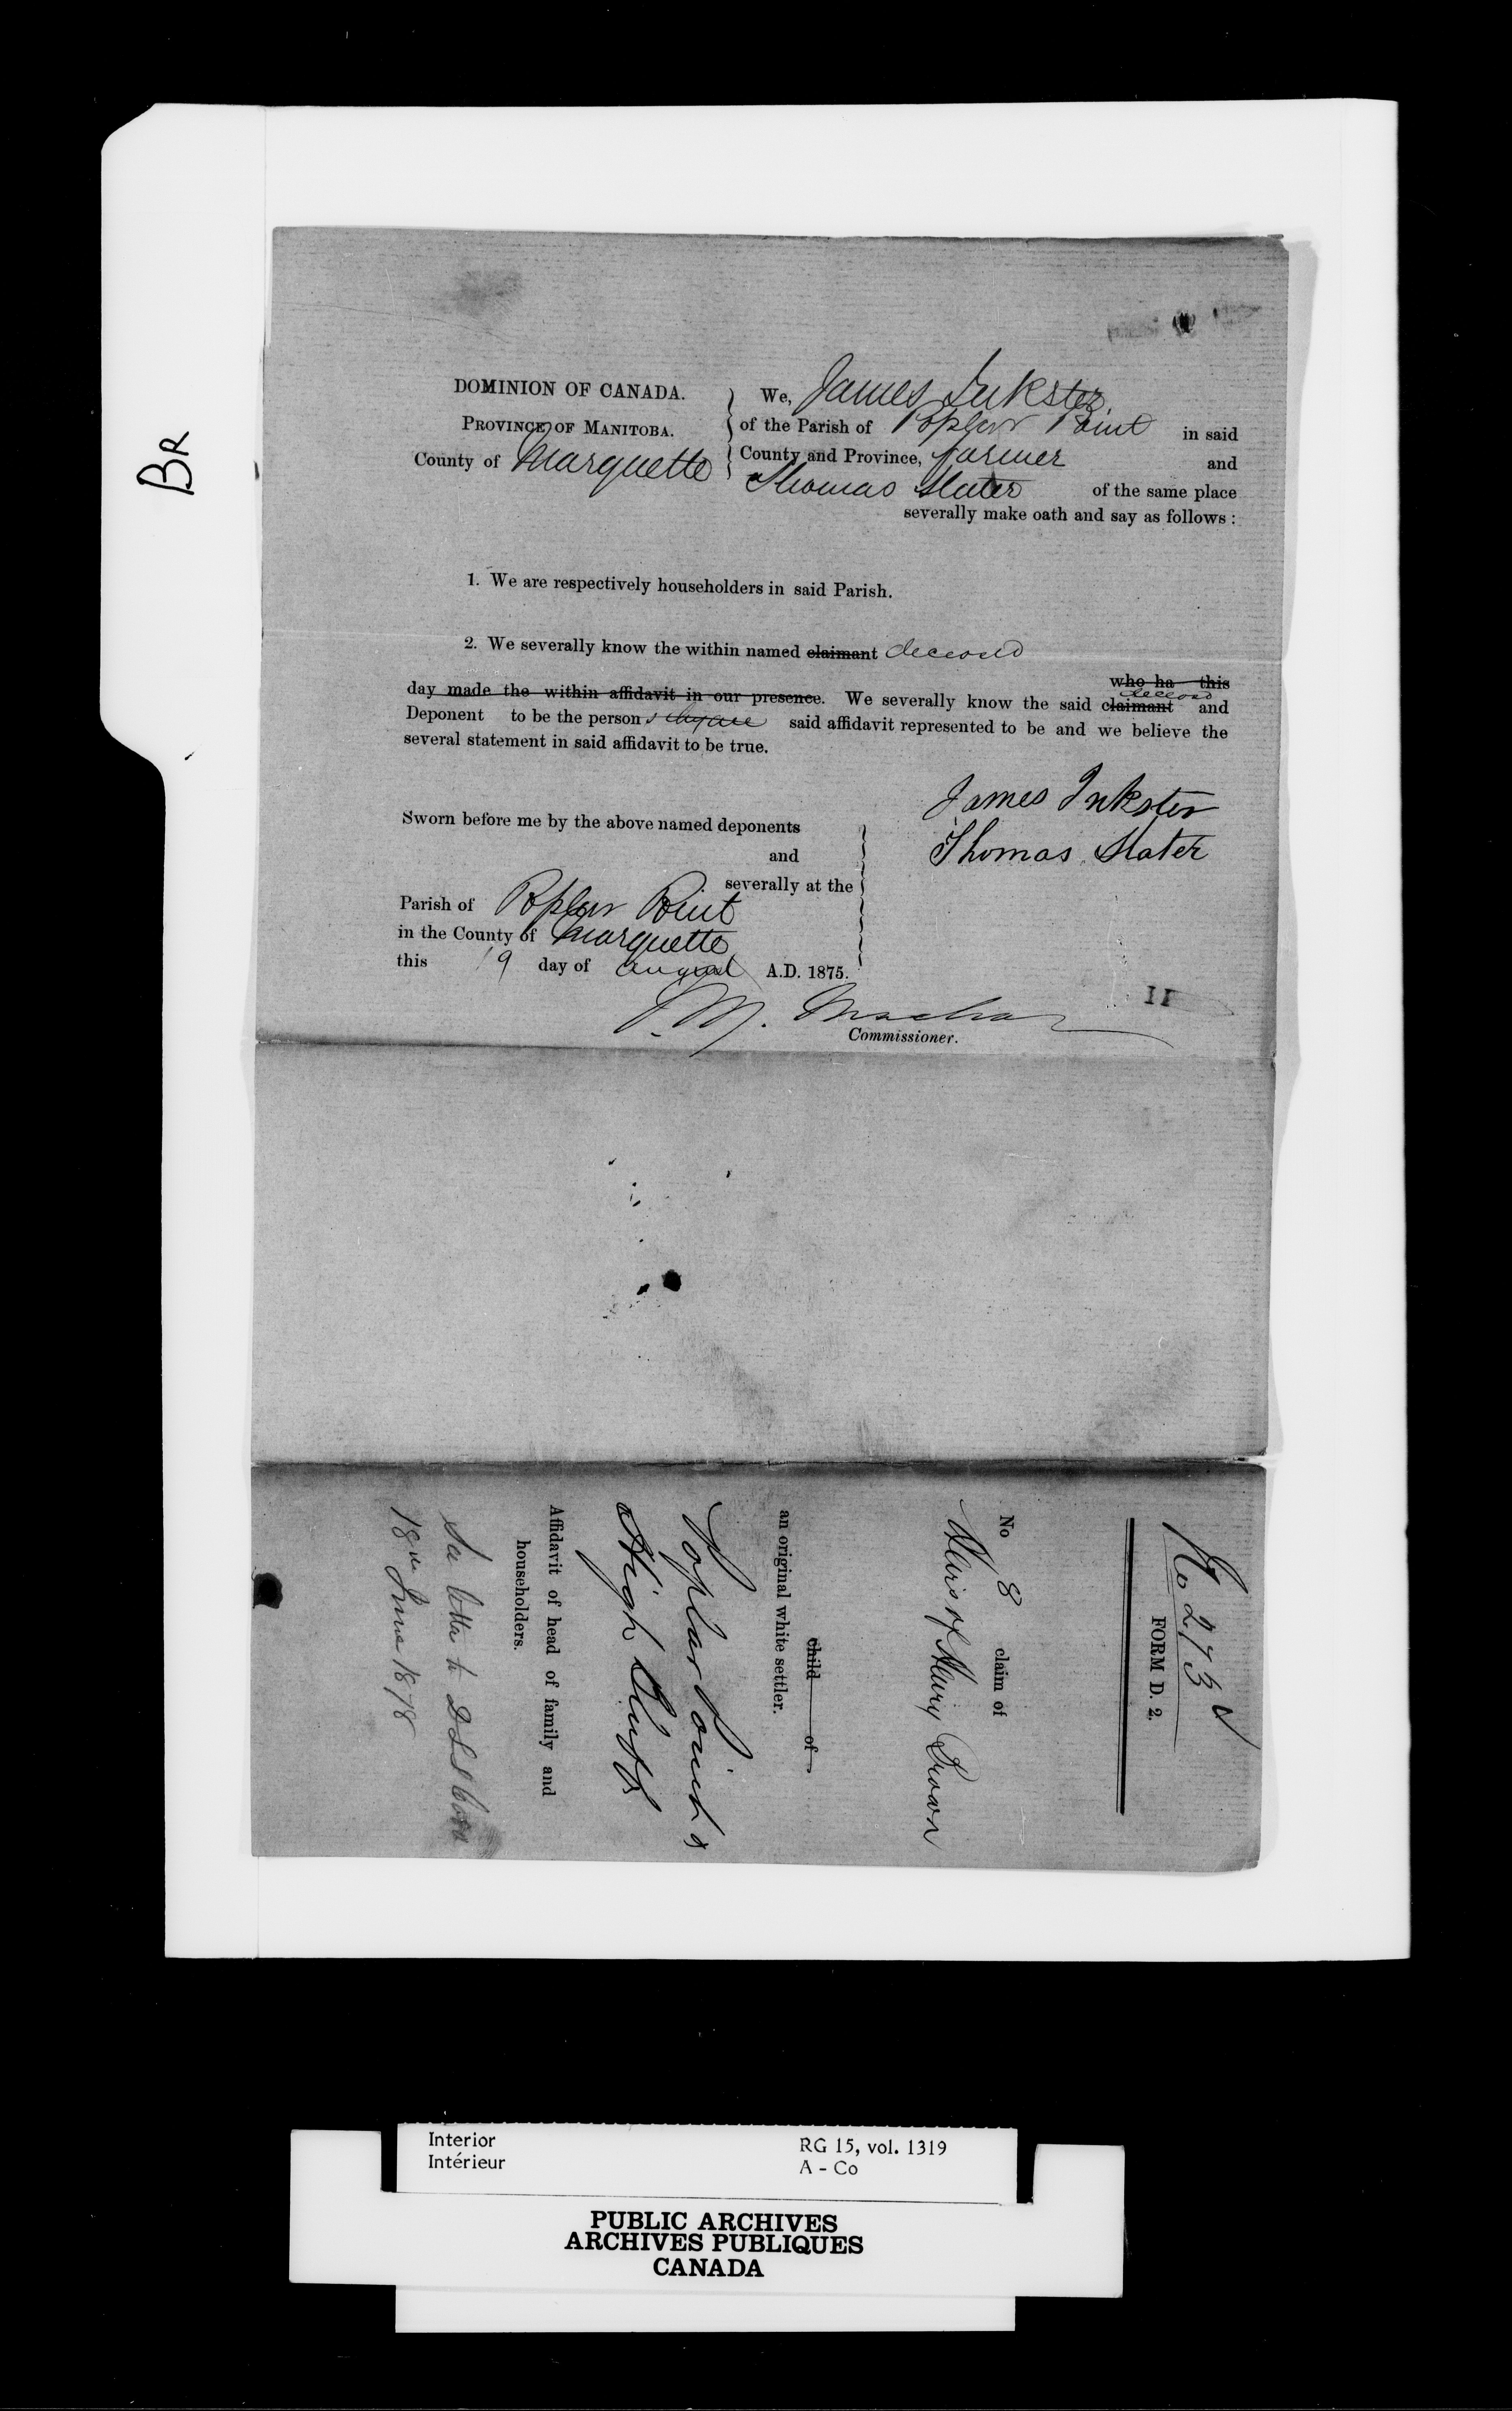 BR
DOMINION OF CANADA.
PROVINCE OF MANITOBA.
County of Marquette
We, James Inkster
of the Parish of Poplar Point in said
County and Province, farmer and
Thomas Slater of the same place
severally make oath and say as follows :
1. We are respectively householders in said Parish.
2. We severally know the within named claimant deceased
who ha this
day made the within affidavit in our presence. We severally know the said claimant deceased and
Deponent to be the persons they are said affidavit represented to be and we believe the
several statement in said affidavit to be true.
James Inkster
Thomas Slater
Sworn before me by the above named deponents
and
severally at the
Parish of Poplar Point
in the County of Marquette
this 19 day of August A.D. 1875.
Commissioner.
11
No 273
FORM D. 2.
No 8 claim of
Heirs of Mary Brown
child of
an original white settler.
Poplar Point &
High Bluff
Affidavit of head of family and
householders.
18th June 1878
Interior
Intérieur
RG 15, vol. 1319
A - Co
PUBLIC ARCHIVES
ARCHIVES PUBLIQUES
CANADA